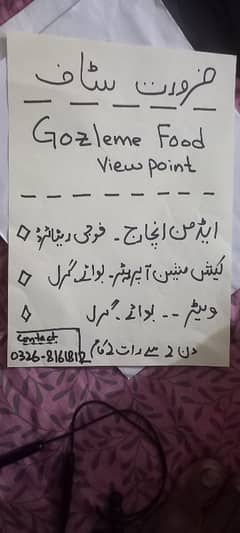 ضرورت سٹاف
Gozleme Food
View point
ایڈمن انچارج - فوجی ریٹائرڈ
کیش مشین آپریٹر - بوائے گرل
ویٹر -- بوائے گرل
دن 2 سے رات 2 کام
Contact
0326-8161812